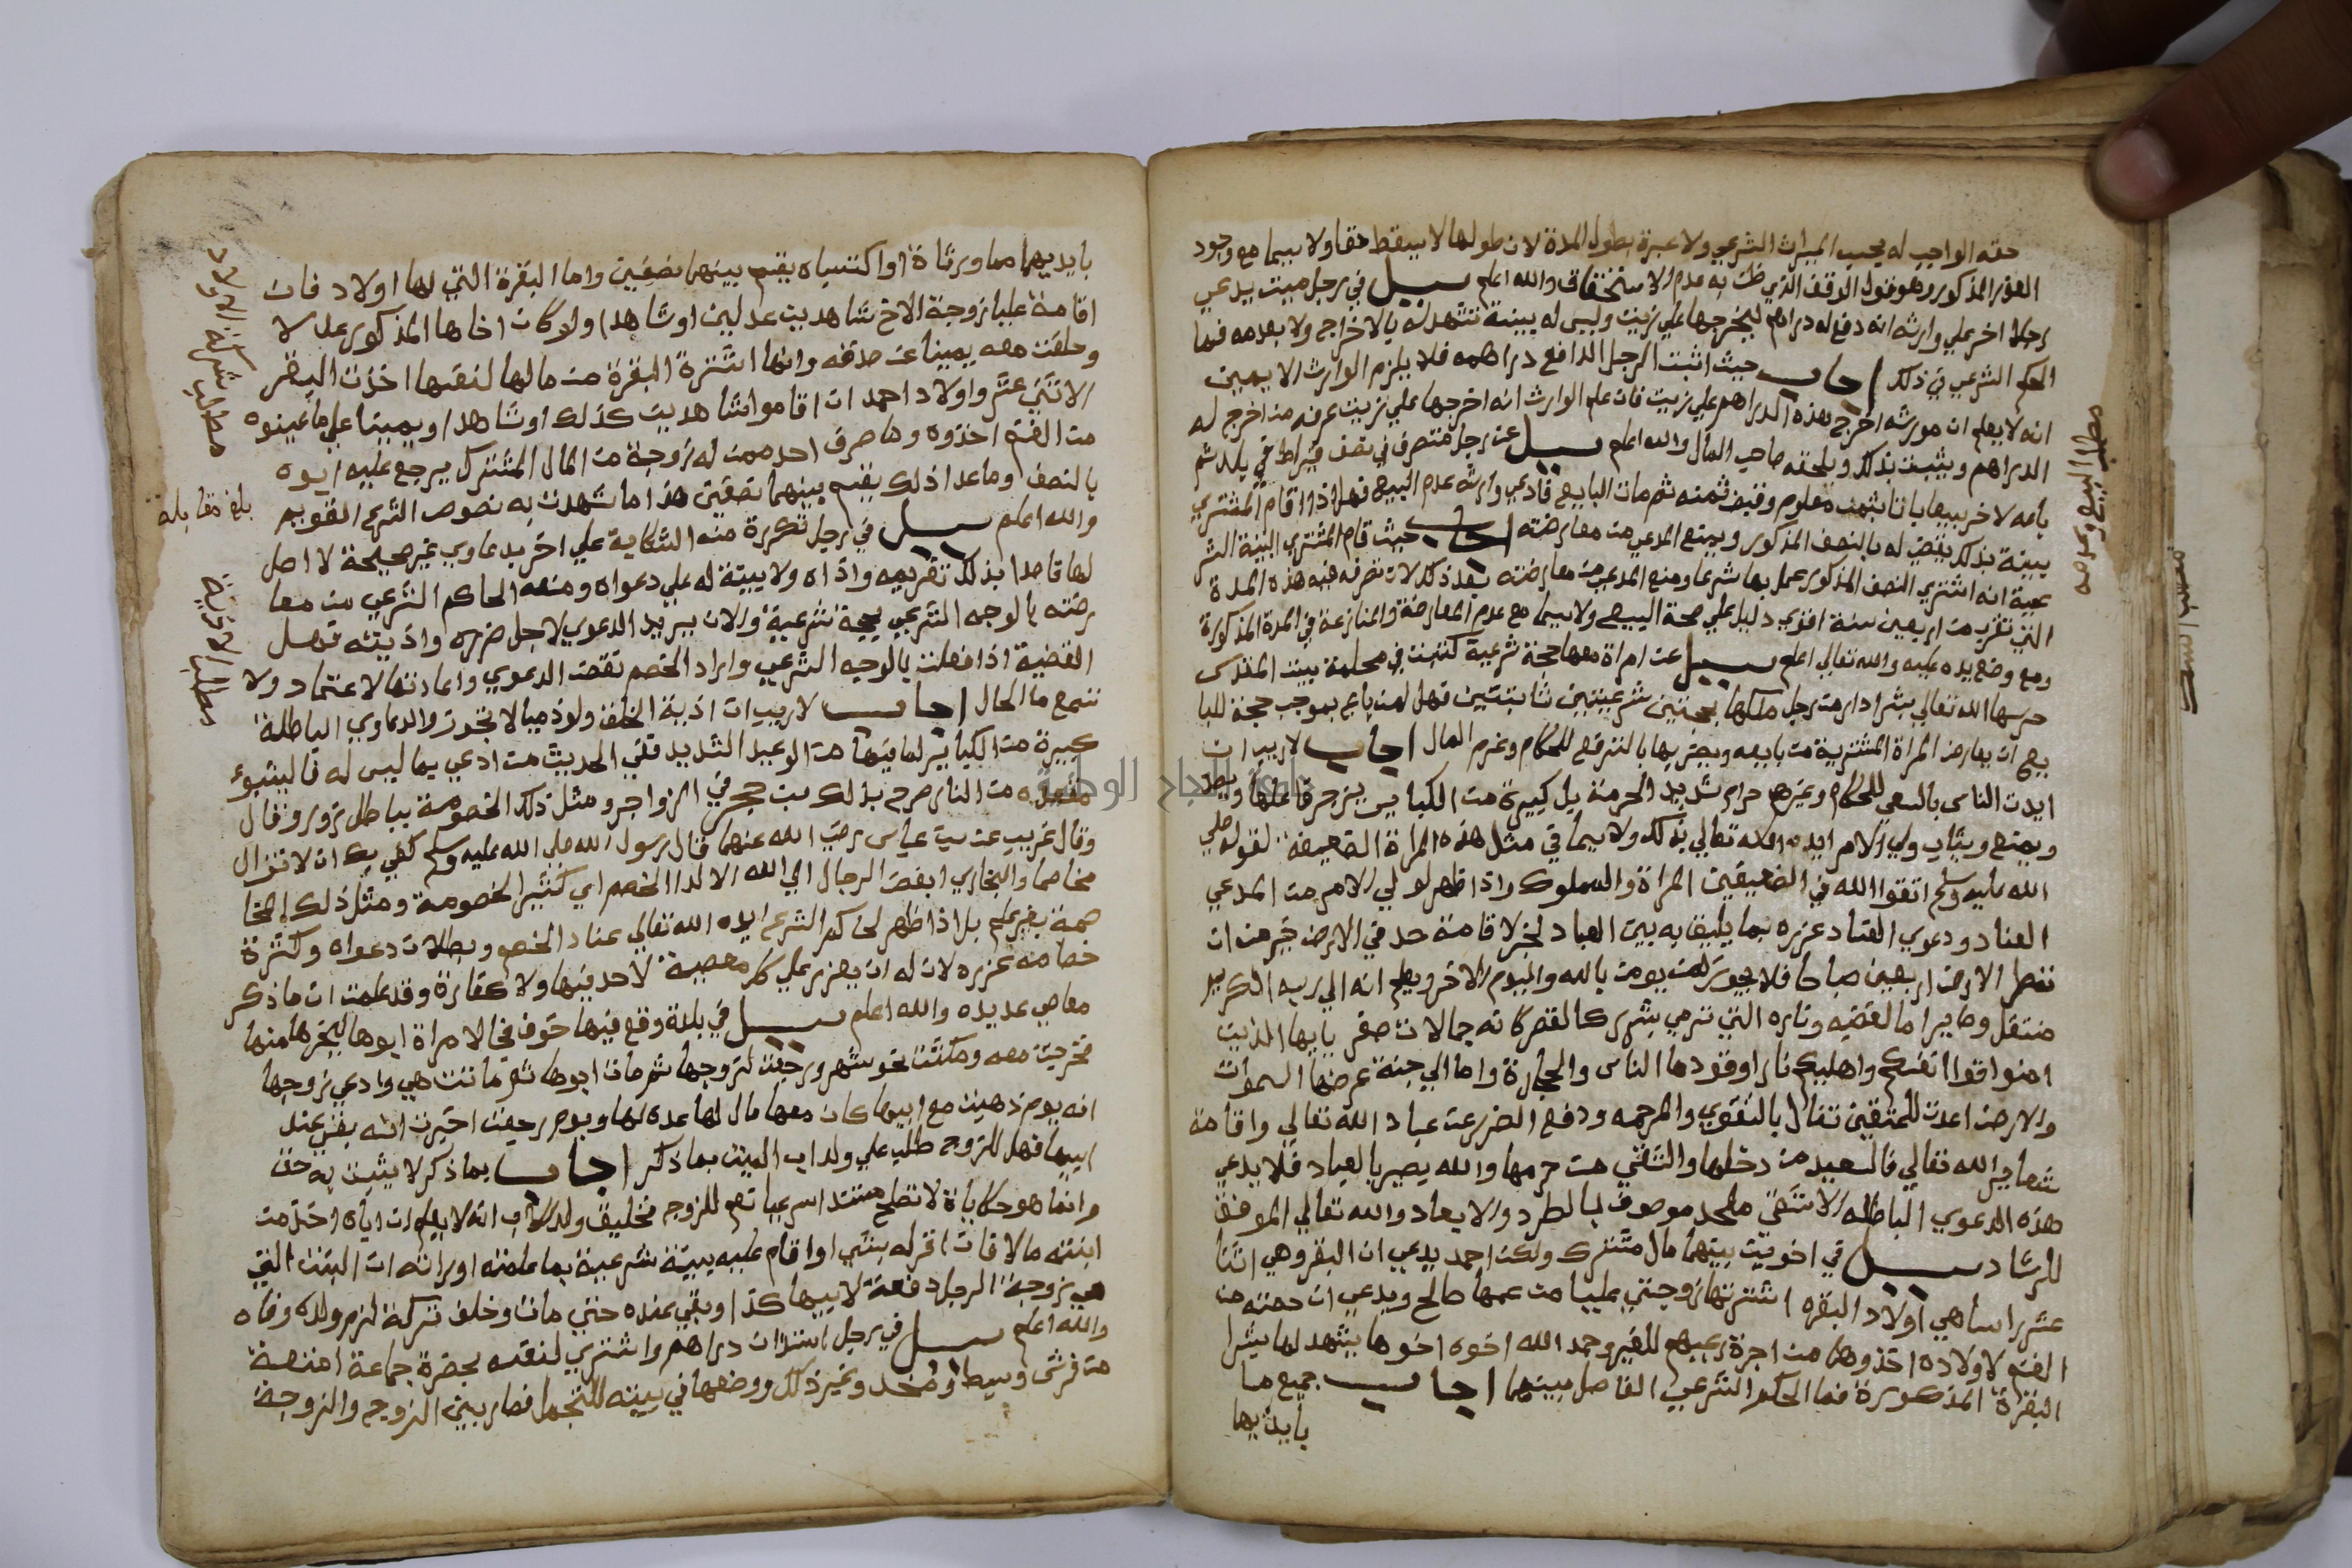 حقه الواجب له بحسب الميراث الشرعي ولا عبرة بطول المدة لان طولها لا يسقط حقا ولا سيما مع وجود
العذر المذكور وهو قول الواقف الذي ظن به عدم الاستحقاق والله اعلم سيل في رجل ميت يدعي
رجل اخر على وارثه انه دفع له دراهم ليخرجها على زيت وليس له بينة تشهد له بالاخراج ولا بعدمه فما
الحكم الشرعي في ذلك اجاب حيث اثبت الرجل الدافع دراهمه فلا يلزم الوارث الا يمين
انه لا يعلم ان مورثه اخرج هذه الدراهم على زيت فان علم الوارث انه اخرجها على زيت عرفه من اخرج له
الدراهم ويثبت بذلك ويلحقه صاحب المال والله اعلم سيل عن رجل متصرف في نصف قيراط في بلد ثم
باعه لاخر بيعا باتا بثمن معلوم وقبض ثمنه ثم مات البايع فادعى وارثه عدم البيع فهل اذا اقام المشتري
بينة بذلك يقضى له بالنصف المذكور ويمنع المدعي من معارضته اجاب حيث قام المشتري البينة الشر
عية انه اشترى النصف المذكور عمل بها شرعا ومنع المدعي من معارضته بعد ذلك لان تصرفه فيه هذه المدة
التي تقرب من اربعين سنة اقوى دليل على صحة البيع ولا سيما مع عدم المعارضة والمنازعة في المدة المذكورة
ومع وضع يده عليه والله تعالى اعلم سيل عن امراة معها حجة شرعية كتبت في محكمة ببيت المقدس
حرسها الله تعالى بشرا دار من رجل ملكها بحجتين شرعيتين ثابتتين فهل لمن باع بموجب حجة للبا
يع ان يعارض المراة المشترية من بايعه ويضربها بالترفع للحكام وغرم المال اجاب لاريب ان
ايذت الناس بالسعي للحكام وغيرهم حرام شديد الحرمة بل كبيرة من الكباير يزجر فاعلها ويصد
ويمنع ويثاب ولي الامر ايده الله تعالى بذلك ولا سيما في مثل هذه المراة الضعيفة لقوله صلى
الله عليه وسلم اتقوا الله في الضعيفين المراة والمملوك واذا ظهر لولي الامر من المدعي
العناد ودعوى الفساد عزره بما يليق به بين العباد لخبر لاقامة حد في الارض خير من ان
تمطر الارض اربعين صباحا فلا يجوز لمن يومن بالله واليوم الاخر ويعلم انه الى ربه الكريم
منتقل وصاير اما لغضبه وناره التي ترمي بشرر كالقصر كانه جمالات صفر يا ايها الذين
امنوا قوا انفسكم واهليكم نارا وقودها الناس والحجارة واما الى جنة عرضها السموات
والارض اعدت للمتقين تنال بالتقوى والمرحمه ودفع الضرر عن عباد الله تعالى واقامة
شعاير الله تعالى فالسعيد من دخلها والشقي من حرمها والله بصير بالعباد فلا يدعي
هذه الدعوى الباطله الا شقي ملحد موصوف بالطرد والابعاد والله تعالى الموفق
للرشاد سيل في اخوين بينهما مال مشترك ولكن احمد يدعي ان البقر وهي اثنا
عشر راسا هي اولاد البقره اشترتها زوجتي عليا من عمها صالح ويدعي ان حصته من
الغنم لاولاده اخذوها من اجرة رعيهم للغير وحمد الله اخوه اخوها يشهد لها بشرا
البقرة المذكورة فما الحكم الشرعي الفاصل بينهما اجاب جميع ما
بايديها
مطلب البيع وعدمه
بايديهما مما ورثاه او اكتسباه يقسم بينهما نصفين واما البقرة التي لها اولاد فان
اقامة عليا زوجة الاخ شاهدين عدلين او شاهدا ولو كان اخاها المذكور عدلا
وحلفت معه يمينا عن صدقه وانها اشترة البقرة من مالها لنفسها اخذت البقر
الاثني عشر واولاد احمد ان اقاموا شاهدين كذلك او شاهدا ويمينا على ما عينوه
من الغنم اخذوه وما صرف احد ممن له زوجة من المال المشترك يرجع عليه ايوه
بالنصف وما عدا ذلك يقسم بينهما نصفين هذا ما شهدت به نصوص الشرع القويم
والله اعلم سيل في رجل تكررة منه الشكاية على اخر بدعاوي غير صحيحة لا اصل
لها قاصدا بذلك تغريمه واذاه ولا بينة له على دعواه ومنعه الحاكم الشرعي من معا
رضته بالوجه الشرعي بحجة شرعية والان يريد الدعوى لاجل ضرره واذيته فهل
القضية اذا فصلت بالوجه الشرعي واراد الخصم نقض الدعوى واعادتها لا عتماد ولا
تسمع ما الحال اجاب لاريب ان اذية الخلق ولو ذميا لا تجوز والدعاوي الباطلة
كبيرة من الكباير لما فيها من الوعيد الشديد ففي الحديث من ادعى بما ليس له فاليتبوء
مقعده من النار صرح بذلك بن حجر في الزواجر ومثل ذلك الخصومة بباطل تزور وقال
وقال غريب عن بن عباس رضي الله عنهما قال رسول الله صلى الله عليه وسلم كفى بك ان لا تزال
مخاصما والبخاري ابغض الرجال الى الله الالد الخصم اي كثير الخصومة ومثل ذلك المخا
صمة بغير علم بل اذا ظهر لحاكم الشرع ايده الله تعالى عناد الخصم وبطلان دعواه وكثرة
خصامه عزره لان له ان يعزر على كل معصية لا حد فيها ولا كفارة وقد علمت ان ما ذكر
معاصي عديده والله اعلم سيل في بلدة وقع فيها خوف فجا لامراة ابوها ليخرجها منها
فخرجت معه ومكثت نحو شهر ورجعت لزوجها ثم مات ابوها ثم ماتت هي وادعى زوجها
انه يوم ذهبت مع ابيها كان معها مال لها عده لها ويوم رجعت اخبرت انه بقي عند
ابيها فهل للزوج طلب على ولد اب الميت بما ذكر اجاب بما ذكر لا يثبت به حق
وانما هو حكاية لا تصلح مستندا شرعيا نعم للزوج تحليف ولد الاب انه لا يعلم ان اباه اخذ من
ابنته مالا فان اقر له بشي او اقام عليه بينة شرعية بما علمته او رانه ان البنت التي
هي زوجة الرجل دفعة لابيها كذا وبقي عنده حتى مات وخلف تركة لزم ولده وفاه
والله اعلم سيل في رجل استدان دراهم واشترى لنفسه بحضرة جماعة امتعة
من فرش وبسط ومخد وغير ذلك ووضعها في بيته للتجمل فصار بين الزوج والزوجة
مطلب شركة الاولاد
بلغ مقابلة
مطلب الاذية